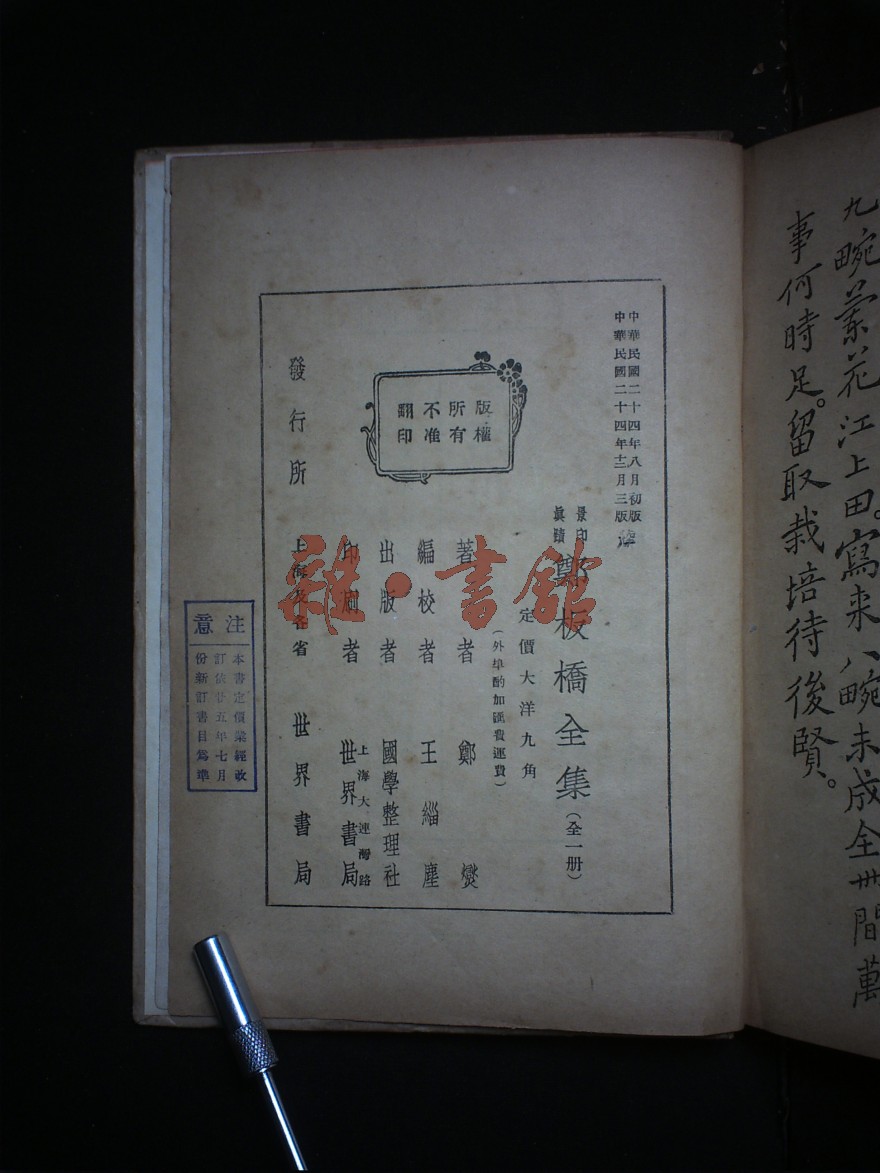 九畹蘭花江上田。寫来八畹未成全。世間萬
事何時足。留取栽培待後賢。
中華民國二十四年八月初版
中華民國二十四年十二月三版
景印
眞蹟
鄭板橋全集(全一册)
定價大洋九角
(外埠酌加匯費運費)
版權
所有
不准
翻印
著者 鄭燮
編校者 王緇塵
出版者 國學整理社
上海大連灣路
印刷者 世界書局
發行所 上海及各省 世界書局
雜·書館
注意
本書定價業經改
訂依廿五年七月
份新訂書目爲準